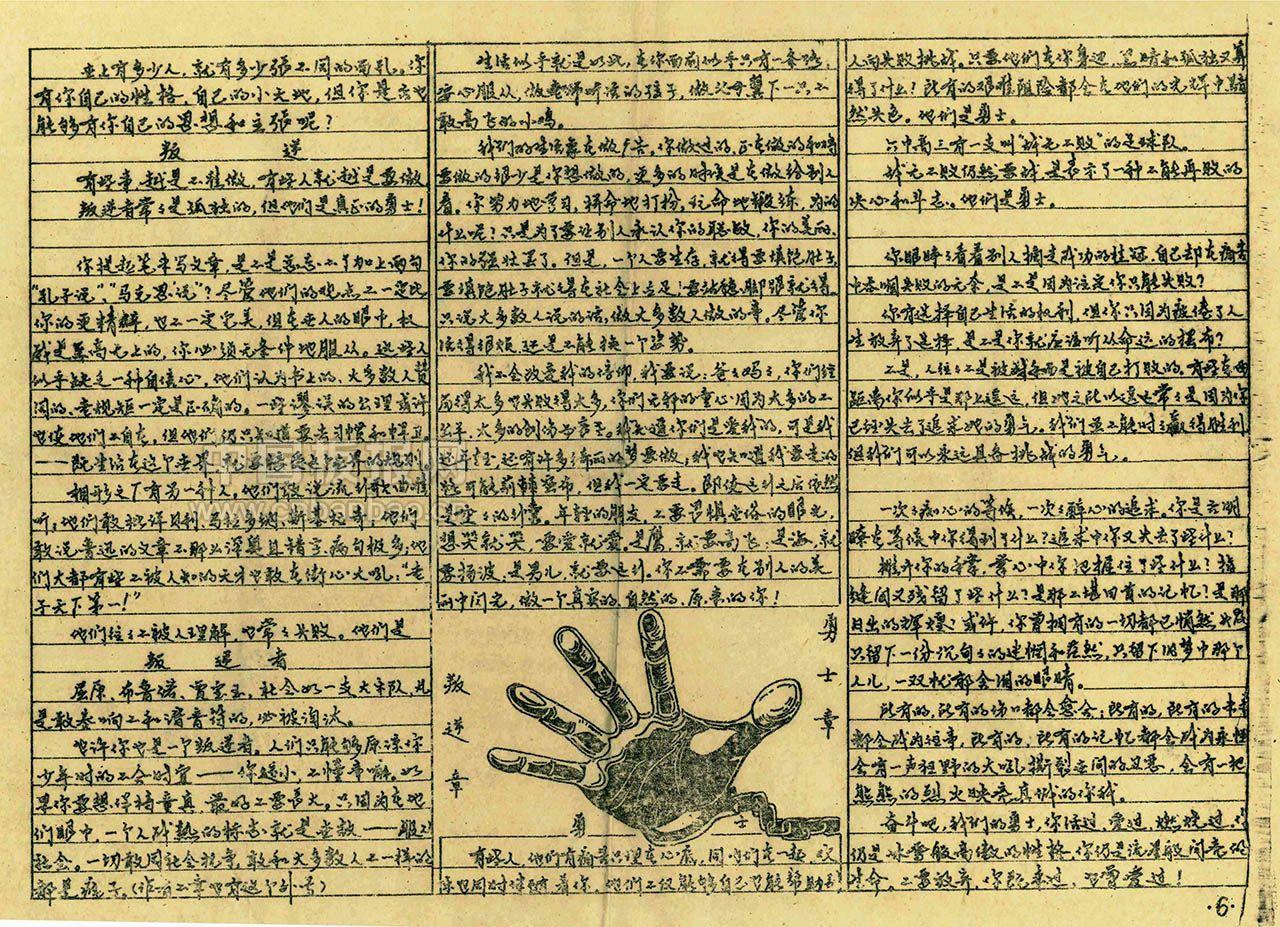 世上有多少人，就有多少张不同的面孔。你
有你自己的性格，自己的小天地，但你是否也
能够有你自己的思想和主张呢？
叛 逆
有些事，越是不准做，有些人就越是要做
叛逆者常々是孤独的，但他们是真正的勇士！
你提起笔来写文章，是不是总忘不了加上两句
“孔子说”，“马克思说”？尽管他们的观点不一定比
你的更精辟，也不一定完美，但在世人的眼中，权
威是至高无上的，你必须无条件地服从。这些人
似乎缺乏一种自信心，他们认为书上的、大多数人赞
同的、老规矩一定是正确的。一些谬误的公理或许
也使他们不自在，但他们仍只知道要去习惯和捍卫
——既生活在这个世界
相形之下有另一种人。他们敢说流行歌曲难
听；他们敢批评贝利、马拉多纳、斯基拉奇，他们
敢说鲁迅的文章不那么深奥且错字、病句极多；他
们大都有些不被人知的天才也敢在街心大吼：“老
子天下第一！”
他们往々不被人理解，也常々失败。他们是
叛 逆 者
屈原、布鲁诺、贾宝玉，社会如一支大军队，凡
是敢奏响不和谐音符的，必被淘汰。
也许你也是一个叛逆者。人们只能够原谅你
少年时的不合时宜——你还小，不懂事嘛。如
果你要想保持童真，最好不要长大。只因为在他
们眼中，一个人成熟的标志就是世故——服从
社会。一切敢同社会抗争，敢和大多数人不一样的
都是疯子。（
生活似乎就是如此，在你面前似乎只有一条路：
安心服从，做老师听话的孩子，做父母翼下一只不
敢高飞的小鸡。
我们的生活要在做广告。你做过的、正在做的和将
要做的很少是你想做的，更多的时候是在做给别人
看。你努力地学习，拼命地打扮，玩命地锻练，为的
什么呢？只是为了要让别人承认你的聪敏，你的美丽、
你的强壮罢了。但是，一个人要生存，就得要填饱肚子
要填饱肚子就得在社会上立足！要站稳脚跟就得
只说大多数人说的话，做大多数人做的事。尽管你
活得很烦，还是不能换一个姿势。
我不会改变我的信仰，我要说，爸々妈々，你们经
历得太多也失败得太多，你们无邪的童心因为太多的不
公平、太多的创伤而 我知道你们是爱我的，可是我
还年轻，还有许多绮丽的梦要做，我也知道我要走的
路可能荆棘密布，但我一定要走。即使这到之后依然
是空々的行囊。年轻的朋友，不要畏惧世俗的眼光，
想哭就哭，要爱就爱。是鹰，就要高飞；是海，就
要扬波，是男儿，就要远行。你不需要在别人的美
丽中闪光，做一个真实的、自然的、原来的你！
叛 逆 章
勇 士 章
勇 士
有些人，他们有痛苦只埋在心底，同他们在一起，欢
乐也同时伴随着你，他们不仅能够自己也能帮助别
人向失败挑战。只要他们在你身边，黑暗和孤独又算
得了什么！所有的艰难阻险都会在他们的光辉中黯
然失色。他们是勇士。
六中高三有一支叫“战无不败”的足球队。
战无不败仍然要战是表示了一种不能再败的
决心和斗志。他们是勇士。
你眼睁々看着别人摘走成功的桂冠，自己却在痛苦
中吞咽失败的无奈，是不是因为注定你只能失败？
你有选择自己生活的权利，但你只因为疲倦了人
生放弃了选择，是不是你就应该听从命运的摆布？
不是，人往々不是被对手而是被自己打败的。有些东西
距离你似乎是那么遥远，但她之所以遥远常々是因为你
已经失去了追求她的勇气。我们虽不能时々赢得胜利
但我们可以永远具备挑战的勇气。
一次々痴心的等候，一次々醉心的追求。你是否明
瞭在等候中你得到了什么？追求中你又失去了些什么？
摊开你的手掌，掌心中你把握住了些什么？指
缝间又残留了些什么？是那不堪回首的记忆？是那
日出的辉煌？或许，你曾拥有的一切都已悄然失落
只留下一份说句々的迷惘和茫然，只留下旧梦中那个
人儿，一双忧郁含泪的眼睛。
所有的，所有的伤口都会愈合；所有的，所有的
都会成为往事，所有的，所有的记忆都会成为永恒
会有一声狂野的大吼撕裂世间的丑恶，会有一把
熊熊的烈火映亮真诚的你我。
奋斗吧，我们的勇士，你活过，爱过，燃烧过，
仍是冰雪般高傲的性格，你仍是流星般闪亮的
生命，不要放弃，你既来过，也曾爱过！
·6·